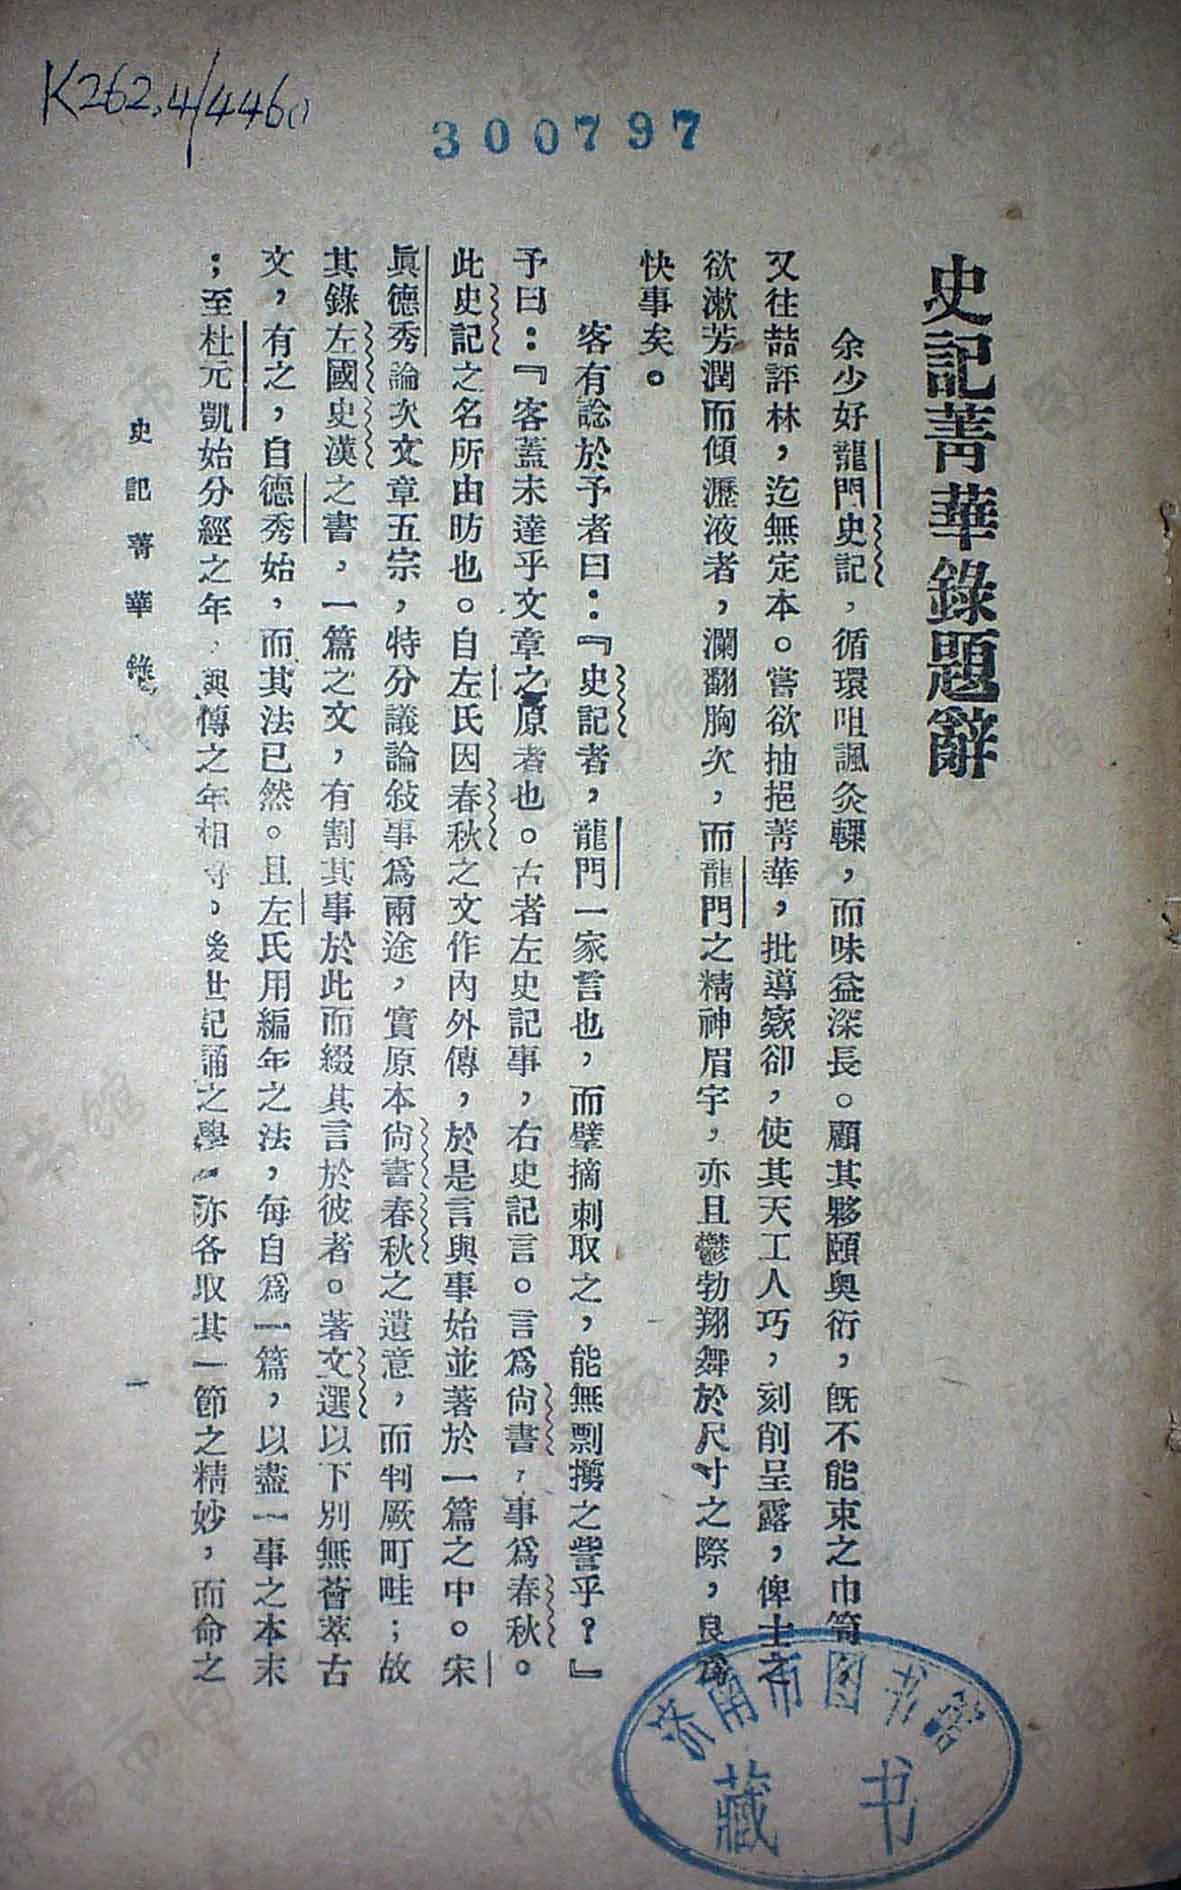 K262.4/4460
300797
史記菁華錄題辭
余少好龍門史記，循環咀諷灸輠，而味益深長。顧其夥頤奧衍，旣不能束之巾笥，
又往喆評林，迄無定本。嘗欲抽挹菁華，批導窾卻，使其天工人巧，刻削呈露，俾士之
欲漱芳潤而傾瀝液者，瀾翻胸次，而龍門之精神眉宇，亦且鬱勃翔舞於尺寸之際，良爲
快事矣。
客有諗於予者曰：『史記者，龍門一家言也，而擘摘刺取之，能無剽擭之訾乎？』
予曰：『客蓋未達乎文章之原者也。古者左史記事，右史記言。言爲尙書，事爲春秋。
此史記之名所由昉也。自左氏因春秋之文作內外傳，於是言與事始並著於一篇之中。宋
眞德秀論次文章五宗，特分議論敍事爲兩途，實原本尙書春秋之遺意，而判厥町畦；故
其錄左國史漢之書，一篇之文，有割其事於此而綴其言於彼者。著文選以下別無薈萃古
文，有之，自德秀始，而其法已然。且左氏用編年之法，每自爲一篇，以盡一事之本末
；至杜元凱始分經之年，與傳之年相附。後世記誦之學，亦各取其一節之精妙，而命之
史記菁華錄
一
济南市图书馆
藏书